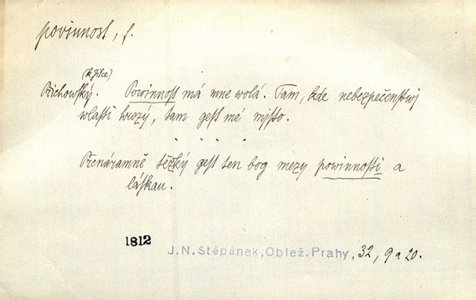 povinnost, f.
Běchowský. Powinnost má mne wolá. Tam, kde nebezpečenstwj
wlasti hrozý, tam gest mé mjsto.
. . . . .
Přenáramně těžký gest ten bog mezy powinnosti a
láskau.
1812 J. N. Štěpánek, Oblež. Prahy, 32, 9 a 20.